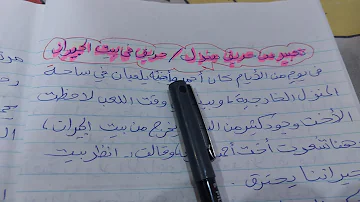 تعبير عن حريق منزل / حريق في بيت الجيران
في يوم من الأيام كان أحمد وأخته يلعبان في ساحة
المنزل الخارجية، وبينما وقت اللعب لاحظت
الأخت وجود كثير من يخرج من بيت الجيران،
هنا شعرت أخت أحمد وقالت: انظر بيت
جيراننا يحترق.